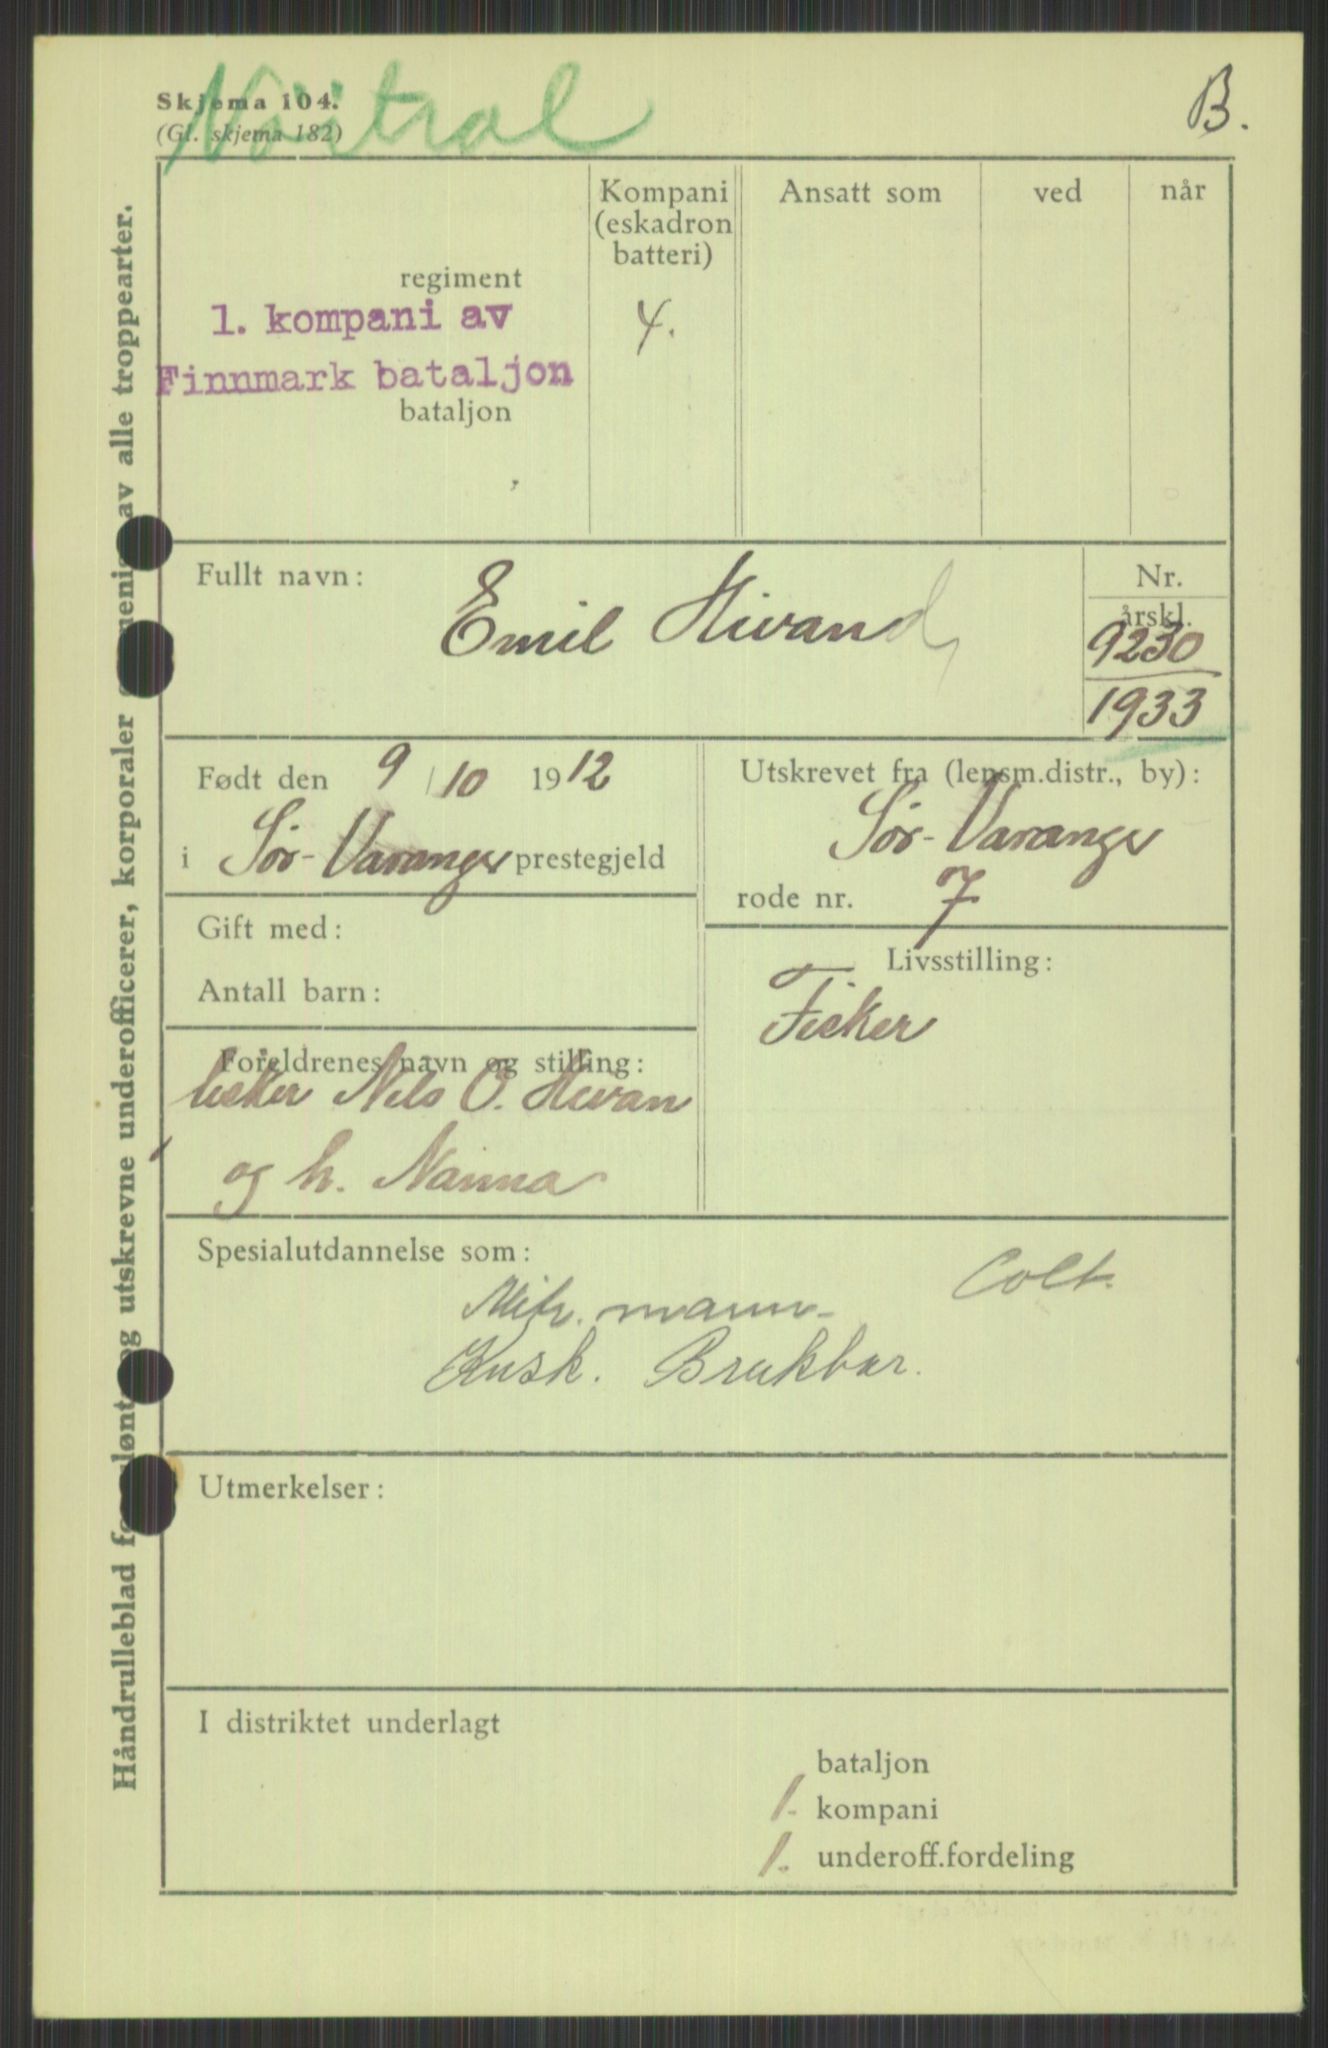 Nøitral
B.
Skjema 104.
(Gl. skjema 182)
Kompani
(eskadron
batteri)
Ansatt som
ved
når
regiment
1. kompani av
4.
Finnmark bataljon
bataljon
Fullt navn:
Emil Hivand
Nr.
årskl.
9230
1933
Født den 9/10 1912
i Sør-Varanger prestegjeld
Utskrevet fra (lensm.distr., by):
Sør-Varanger
rode nr. 7
Gift med:
Antall barn:
Livsstilling:
Fisker
Foreldrenes navn og stilling:
Nils O. Hivan
og h. Nanna
Spesialutdannelse som:
Colt.
Mitr. mann-
Kusk. Brukbar.
Utmerkelser:
I distriktet underlagt
bataljon
1. kompani
1. underoff.fordeling
Håndrulleblad utskrevne underofficerer, korporaler av alle troppearter.